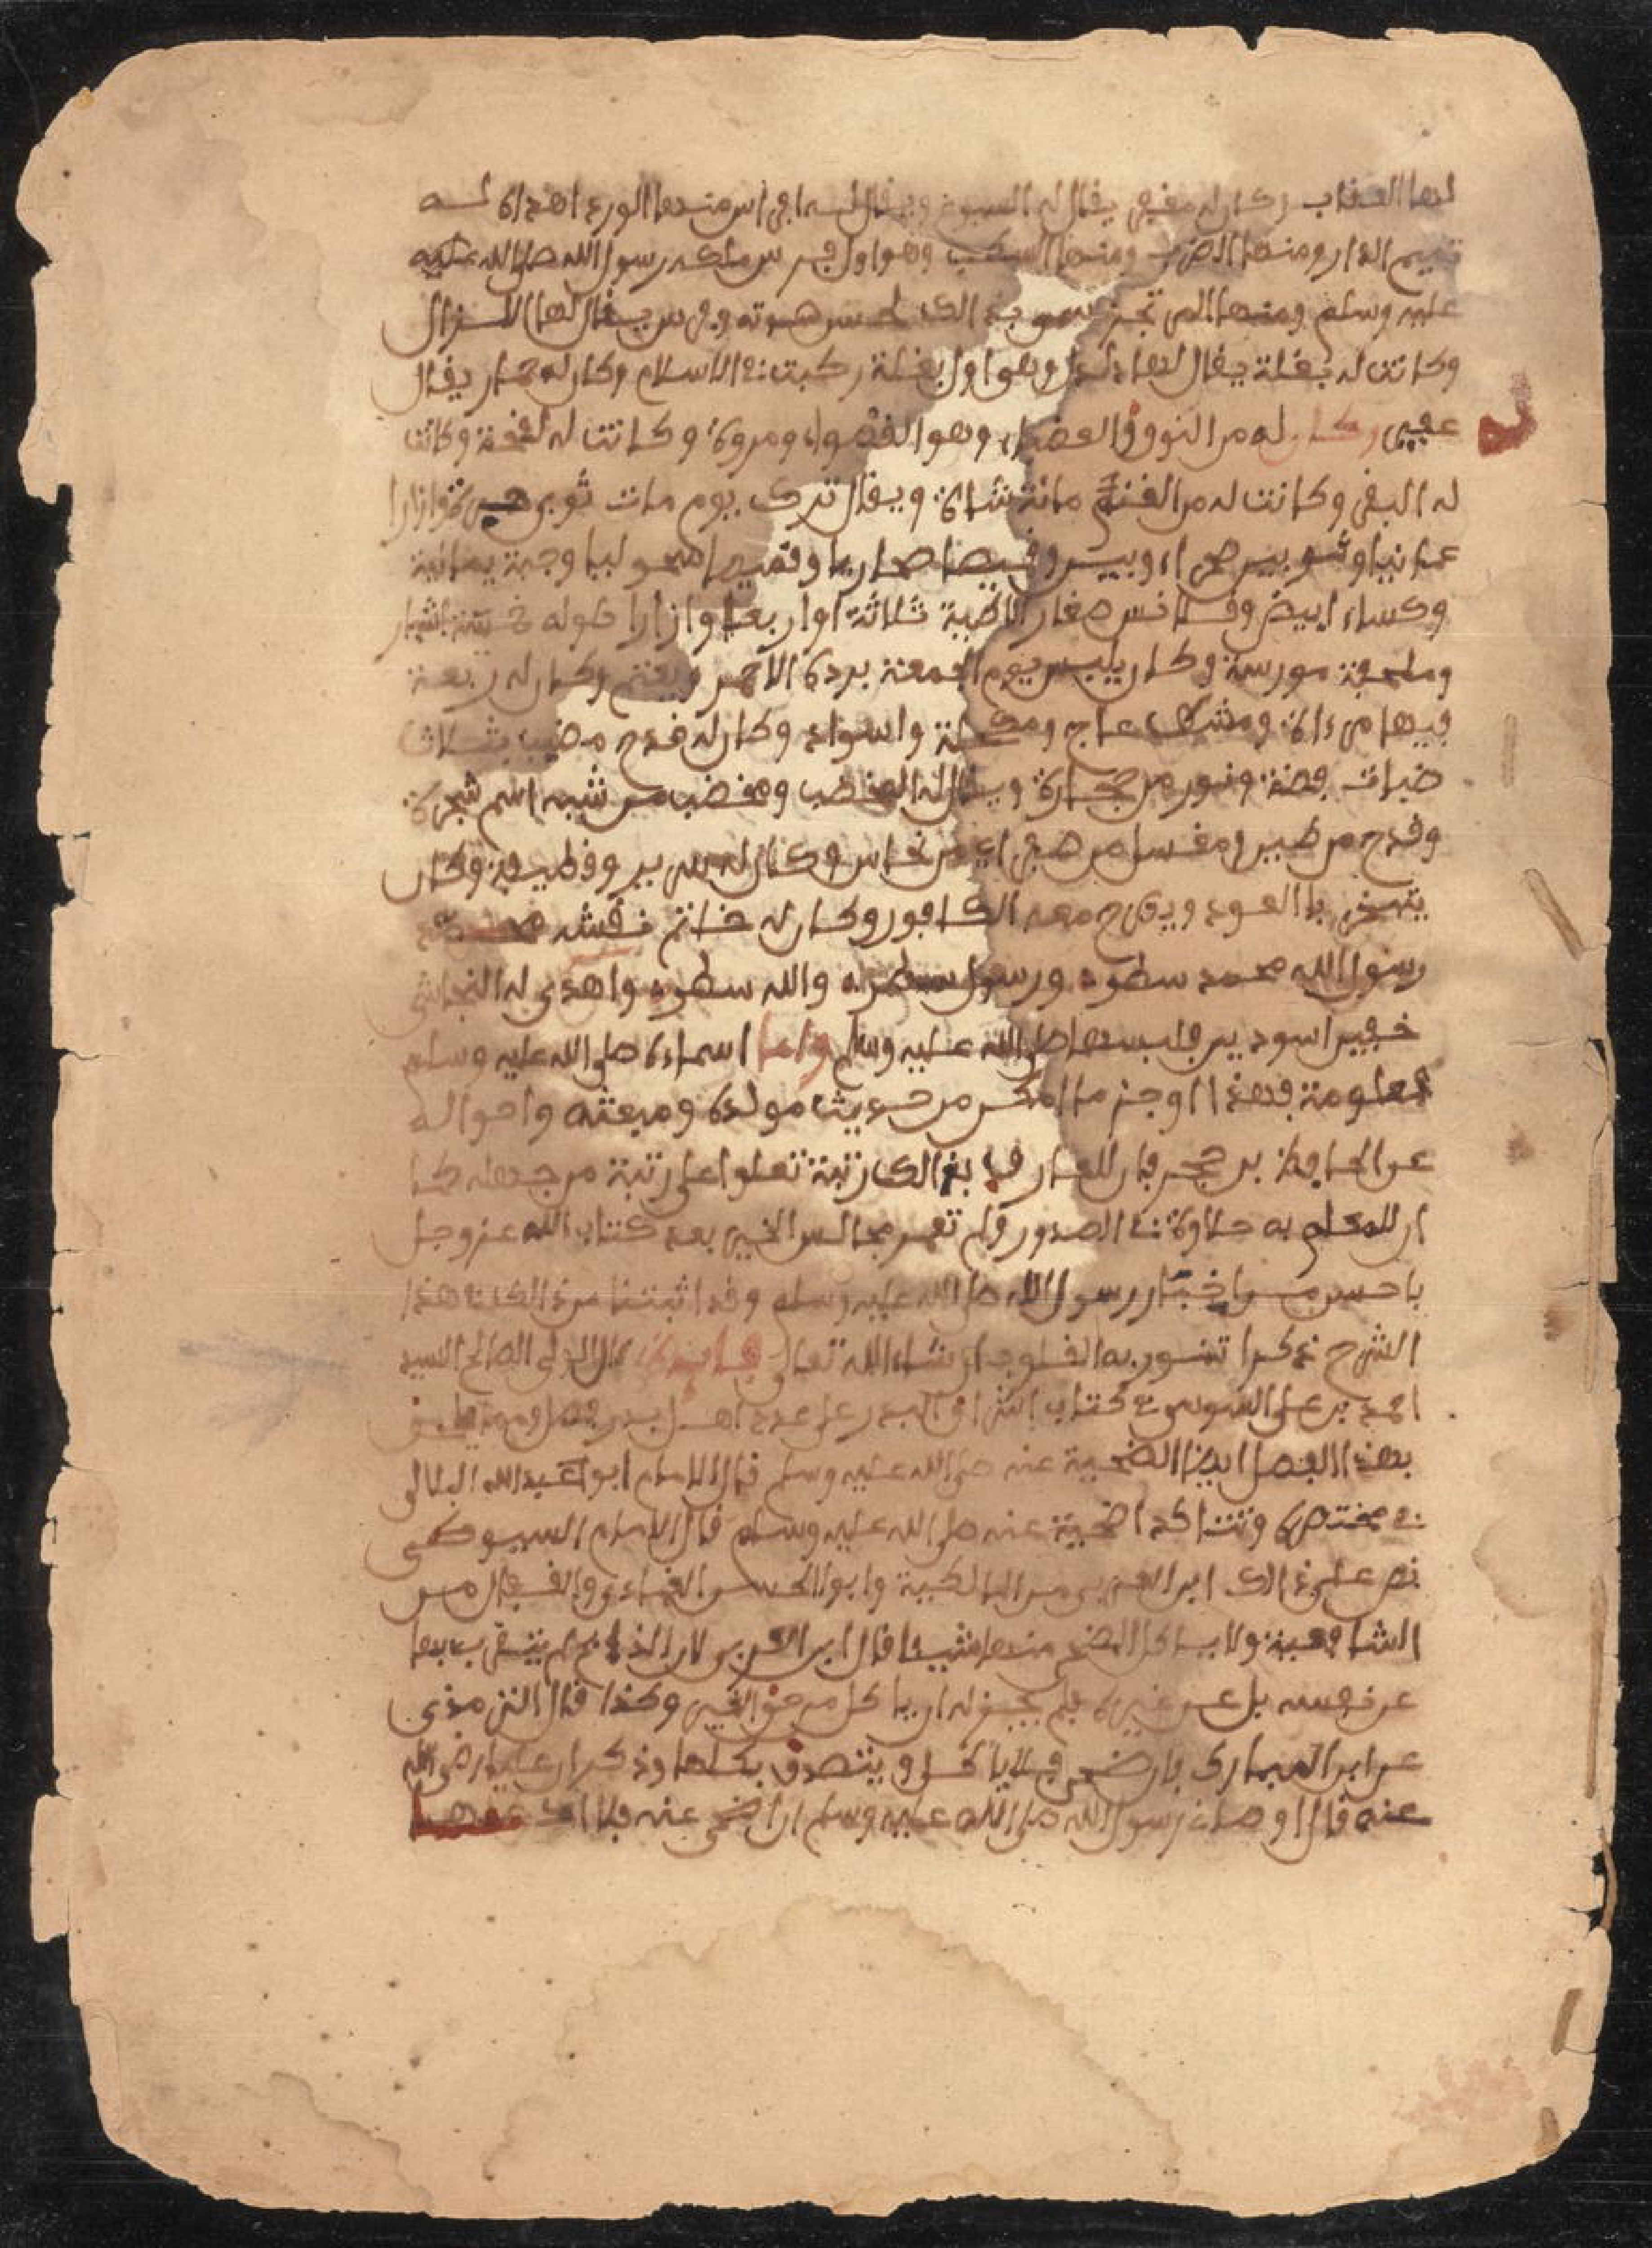 لها العقاب وكان له مغفر يقال له السبوغ ويقال له افراس منها الورد اهداه له
تميم الدار ومنها الضرب ومنها السكب وهو اول فرس ملكه رسول الله صلى الله عليه
عليه وسلم ومنها المرتجز سمي بذالك لحسن صوته وفرس يقال لها اللزال
وكانت له بغلة يقال لها دلدل وهو اول بغلة ركبت في الاسلام وكان له حمار يقال
عفير وكان له من النوق العضباء وهو القصواء ومروة وكانت له لقحة وكانت
له البقر وكانت له من الغنم مائة شاة ويقال ترك يوم مات ثوبي حبرة وازارا
عمانيا وثوبين صحاريين وقميصا صحاريا وقميصا سحوليا وجبة يمانية
وكساء ابيض وقلانس صغار لاطية ثلاثة او اربعا وازارا طوله خمسة اشبار
وملحفة مورسة وكان يلبس يوم الجمعة برده الاحمر ويعتم وكان له ربعة
فيها مرءاة ومشط عاج ومكحلة واسواك وكان له قدح مضبب بثلاث
ضبات فضة وتور من حجارة ويقال له المخضب ومخضب من شبه اسم شجرة
وقدح من طين ومغسل من صفر اي من نحاس وكان له سرير وقطيفة وكان
يتبخر بالعود ويطرح معه الكافور وكان له خاتم نقشه محمد
رسول الله محمد سطره ورسول سطره والله سطره واهدى له النجاشي
خفين اسودين فلبسهما صلى الله عليه وسلم واما اسماءه صلى الله عليه وسلم
فمعلومة فهذا اوجز ما امكن من حديث مولده ومبعثه واحواله
عن الحافظ بن حجر فان للعارف بذالك رتبة تعلوا على رتبة من جهله كما
ان للعلم به حلاوة في الصدور ولم تعمر مجالس الخير بعد كتاب الله عز وجل
باحسن من اخبار رسول الله صلى الله عليه وسلم وقد اثبتنا من ذالك في هذا
الشرح ذكرا تنسور به القلوب ان شاء الله تعالى فايدة قال الولي الصالح السيد
احمد بن علي السوسي في كتاب اشراق البدر على عدد اهل بدر فصل ومما يلحق
بهذا الفصل ايضا الضحية عنه صلى الله عليه وسلم قال الامام ابو عبد الله البلالي
في مختصره وتتاكد اضحية عنه صلى الله عليه وسلم قال الامام السيوطي
نص على ذالك ابن العربي من المالكية وابو الحسن العبادي والقفال من
الشافعية ولا ياكل المضحي منها شيئا قال ابن العربي لان الذابح لم يتقرب بها
عن نفسه بل عن غيره فلم يجز له ان ياكل من حق الغير وكذا قال الترمذي
عن ابن المبارك فان ضحى فلا ياكل ويتصدق بكلها وذكر ان عليا رضي الله
عنه قال اوصاني رسول الله صلى الله عليه وسلم ان اضحي عنه فانا